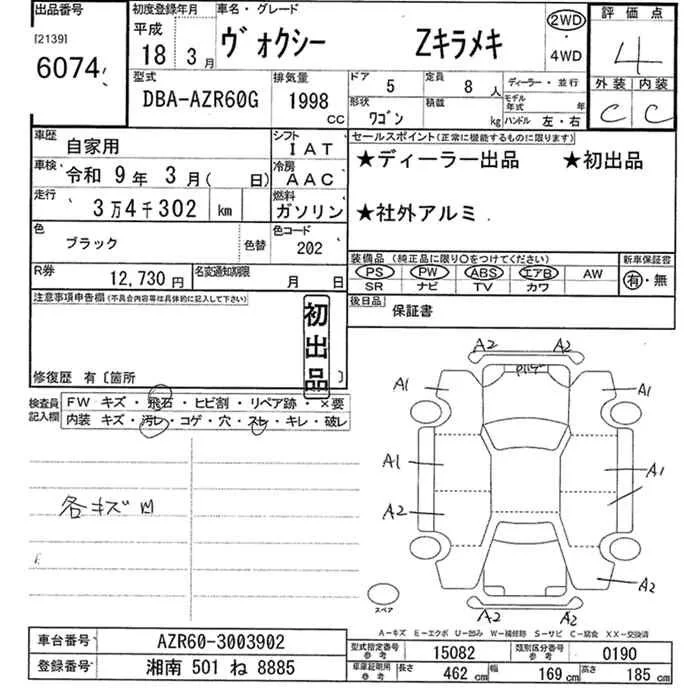 出品番号 初度登録年月 車名・グレード 評価点
[2139] 平成 ヴォクシー Zキラメキ 2WD
6074 18 3月 4WD 4
型式 排気量 ドア 5 定員 8人 ディーラー・並行 外装 内装
DBA-AZR60G 1998 CC 形状 ワゴン 積載 kg モデル年式 年 ハンドル 左・右 C C
車歴 自家用 シフト IAT セールスポイント(正常に機能するものに限ります)
車検 令和 9年 3月( 日) 冷房 AAC ★ディーラー出品 ★初出品
走行 3万4千302 km 燃料 ガソリン ★社外アルミ
色 ブラック 色替 色コード 202
装備品 (純正品に限り○をつけてください) 新車保証書
PS PW ABS エアB AW 有・無
SR ナビ TV カワ
R券 12,730円 名変通知期限 月 日
後日品 保証書
注意事項申告欄(不具合内容等は具体的に記入して下さい)
初出品
修復歴 有〔箇所 〕
検査員記入欄 FW キズ・飛石・ヒビ割・リペア跡・×要
内装 キズ・汚レ・コゲ・穴・スレ・キレ・破レ
各キズ凹
A2 A2
A1 A1
A1 A1
A2
A2
A2 A2
スペア
A-キズ E-エクボ U-凹み W-補修跡 S-サビ C-腐食 XX-交換済
車台番号 AZR60-3003902 型式指定番号 参考 15082 類別区分番号 参考 0190
登録番号 湘南 501 ね 8885 車庫証明用 参考 長さ 462 cm 幅 169 cm 高さ 185 cm